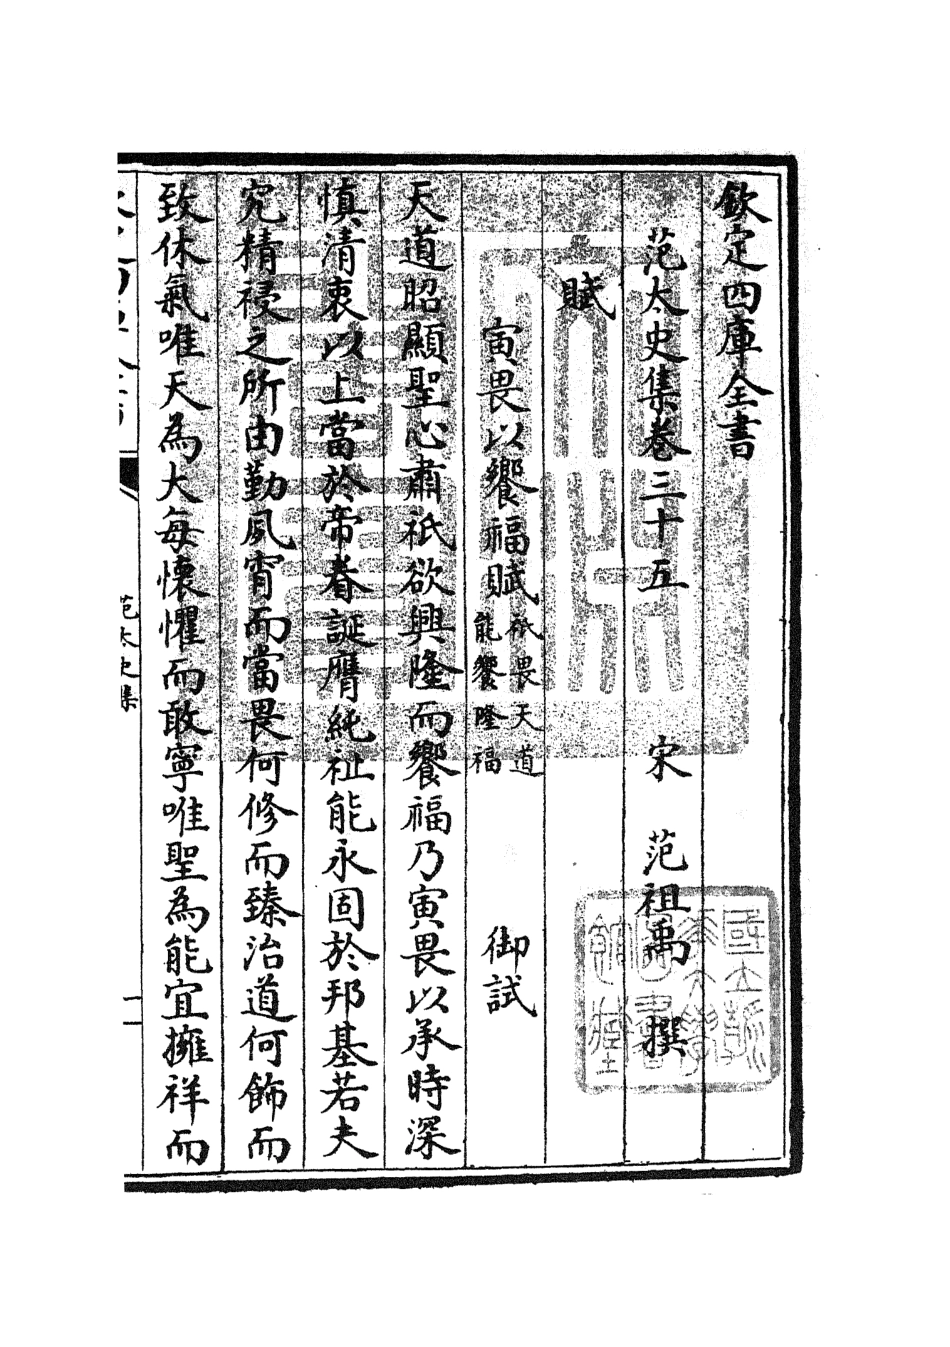 欽定四庫全書
范太史集卷三十五
宋 范祖禹 撰
賦
寅畏以饗福賦 祇畏天道 能饗隆福 御試
天道昭顯聖心肅祇欲興隆而饗福乃寅畏以承時深
慎清衷以上當於帝眷誕膺純祉能永固於邦基若夫
究精祲之所由勤夙宵而當畏何修而臻治道何飾而
致休氣唯天為大每懷懼而敢寧唯聖為能宜擁祥而
范太史集
一